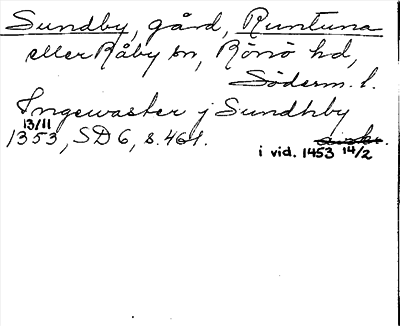 Sundby, gård, Runtuna
eller Råby sn, Rönö hd,
Söderm. l.
Ingewaster j Sundhby
13/11
1353, SD 6, s. 461.
i vid. 1453 14/2